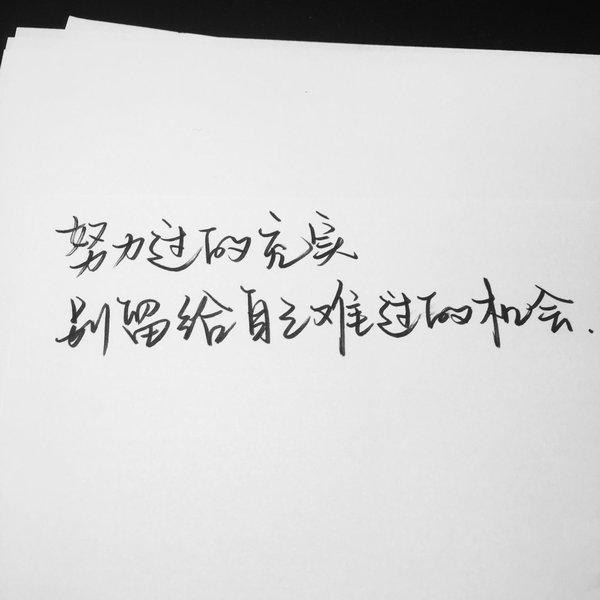 努力过的充实
别留给自己难过的机会.